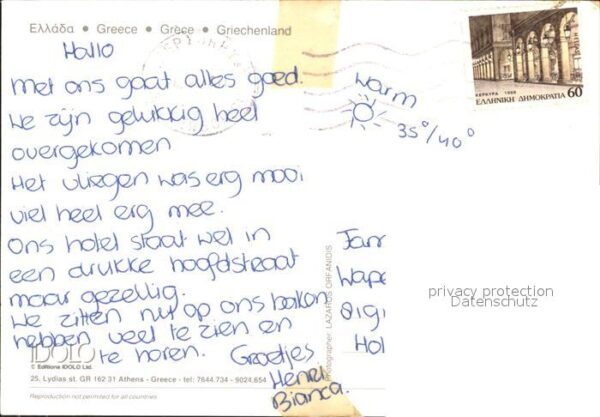 Ελλάδα • Greece • Grèce • Griechenland
Hallo
Met ons gaat alles goed.
We zijn gelukkig heel
overgekomen
Het vliegen was erg mooi
viel heel erg mee.
Ons hotel staat wel in
een drukke hoofdstraat
maar gezellig.
We zitten nu op ons balkon
hebben veel te zien en
te horen. Groetjes
Henri
Bianca.
warm
35°/40°
ΚΕΡΚΥΡΑ 1988
ΕΛΛΗΝΙΚΗ ΔΗΜΟΚΡΑΤΙΑ 60
Jan
Wape
Hol
privacy protection
Datenschutz
Photographer: LAZAROS ORFANIDIS
IDOLO
© Editions IDOLO Ltd.
25, Lydias st. GR 162 31 Athens - Greece - tel: 7644.734 - 9024.654
Reproduction not permited for all countries